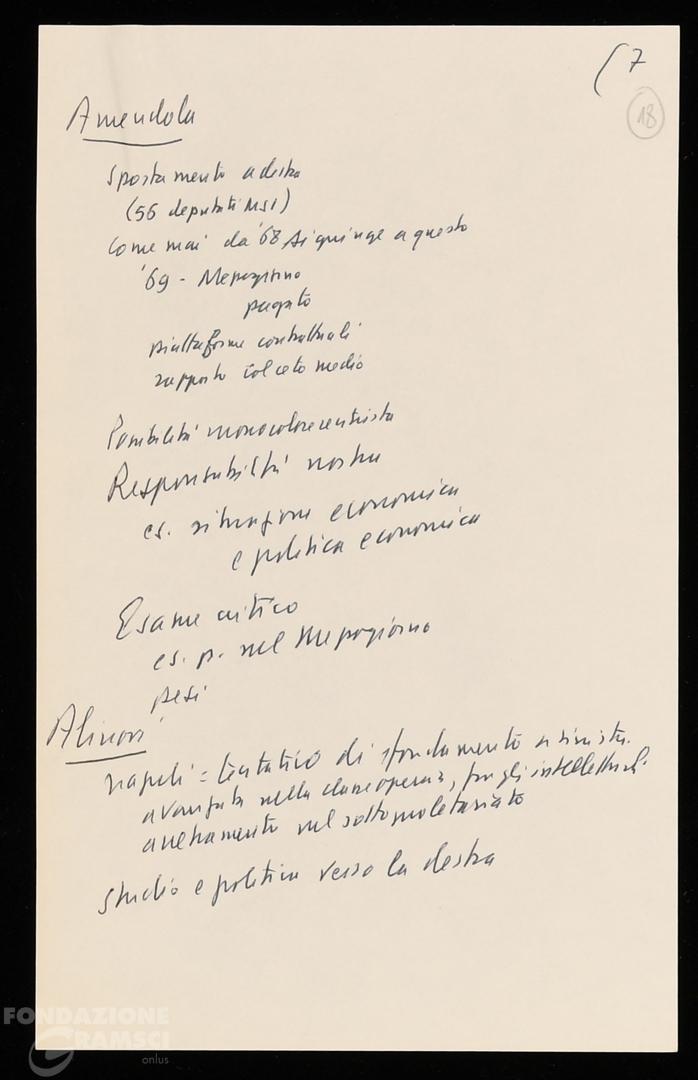 (7
18
Amendola
spostamento a destra
(56 deputati MSI)
come mai da '68 si giunge a questo
'69 - Mezzogiorno
piattaforme contrattuali
rapporto col ceto medio
Possibilità monocolore centrista
Responsabilità nostra
es. situazione economica
e politica economica
Esame critico
es. p. nel Mezzogiorno
pesi
Alinovi
Napoli = tentativo di sfondamento a sinistra
avanzata nella classe operaia, fra gli intellettuali
arretramento nel sottoproletariato
studio e politica verso la destra
FONDAZIONE
GRAMSCI
onlus